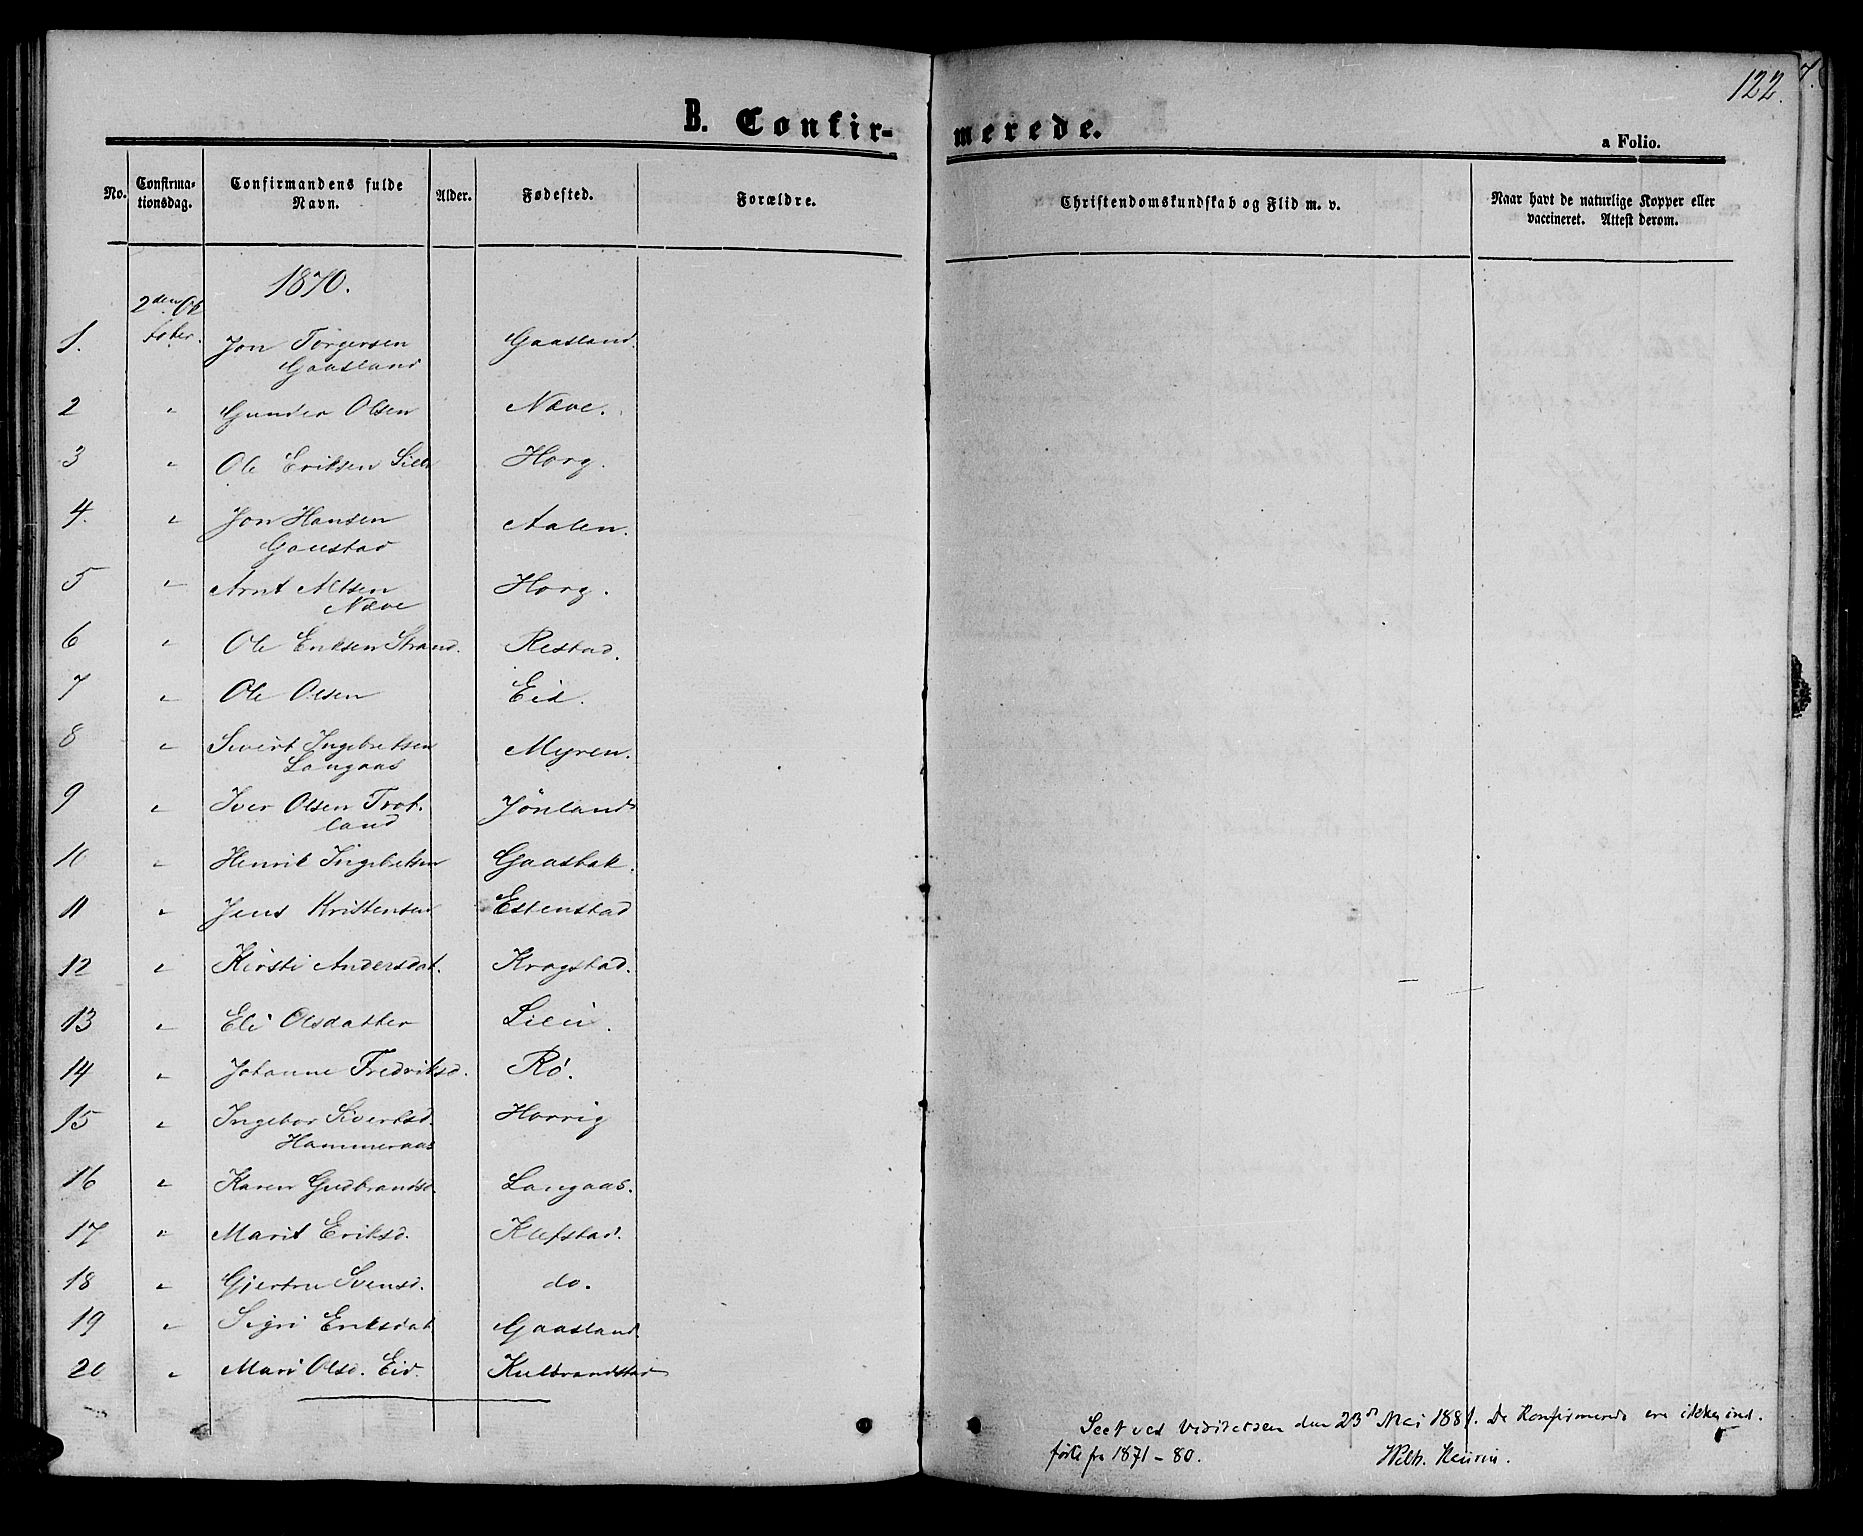 122.
7.
B. Confir-
merede.
a Folio.
No.
Confirma-
tionsdag.
Confirmandens fulde
Navn.
Alder.
Fødested.
Forældre.
Christendomskundskab og Flid m. v.
Naar havt de naturlige Kopper eller
vaccineret. Attest derom.
1870.
2den Ok
tober.
1. Jon Torgersen Gaasland.
Gaasland
2 " Gunder Olsen Næve.
3 " Ole Eriksen Horg.
4. " Jon Hansen Aalen.
Gaustad
5 " Arnt Altsen Horg.
Næve
6 " Ole Eriksen Strand. Restad.
7 " Ole Olsen Eid.
8 " Sivert Ingebretsen Myren.
Langaas
9 " Iver Olsen Trot- Jönland
land
10 " Henrik Ingebretsen Gaasbak.
11 " Jens Kristensen Estenstad
12 " Kirsti Andersdat. Krogstad.
13 " Eli Olsdatter
14 " Johanne Fredriksd. Rø.
15 " Ingebor Sivertsd. Horrig
Hammeraas
16 " Karen Gudbrandsd. Langaas.
17 " Marit Eriksd. Klefstad.
18 " Gjertru Svensd. do.
19 " Sigri Eriksdat Gaasland.
20 " Mari Olsd. Eid. Kulbrandstad
Seet ved Visitatsen den 23d Mai 1881. De Konfirmerede ere ikke ind-
førte fra 1871-80.